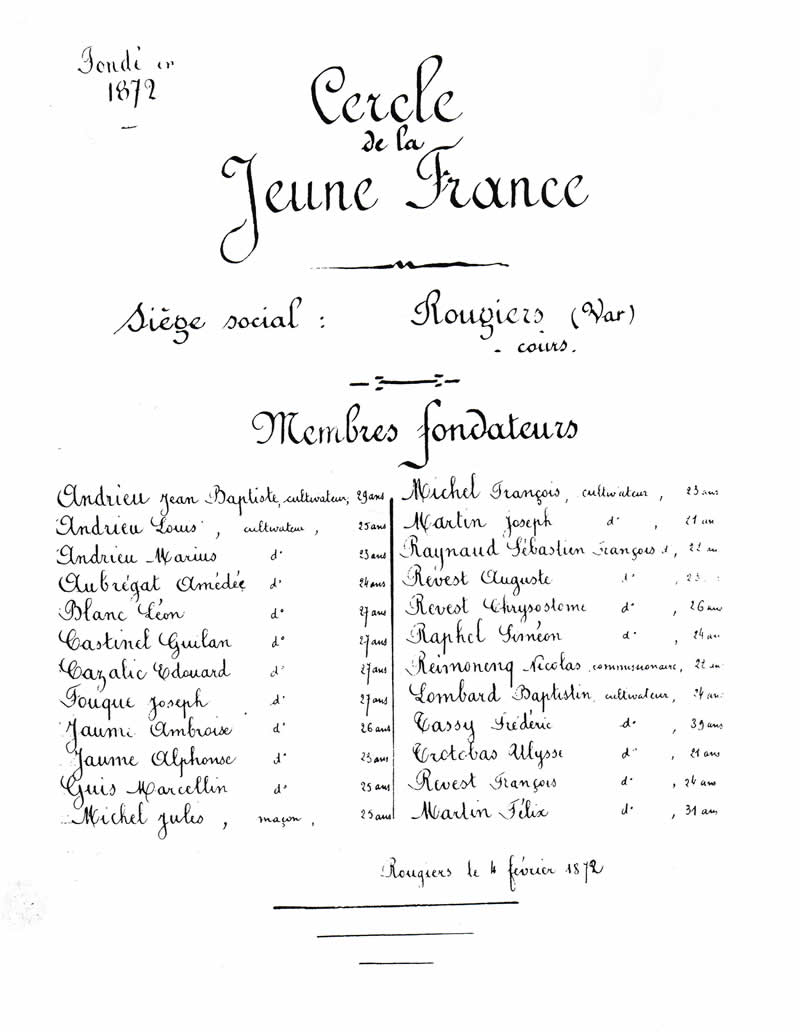 Fondé en
1872
Cercle
de la
Jeune France
Siège social : Rougiers (Var)
- cours.
Membres fondateurs
Andrieu Jean Baptiste, cultivateur, 29 ans
Andrieu Louis, cultivateur, 25 ans
Andrieu Marius d° 23 ans
Aubrégat Amédée d° 24 ans
Blanc Léon d° 27 ans
Castinel Guilan d° 27 ans
Cazalic Edouard d° 27 ans
Fouque Joseph d° 27 ans
Jaume Ambroise d° 26 ans
Jaume Alphonse d° 23 ans
Guis Marcellin d° 25 ans
Michel Jules, maçon, 25 ans
Michel François, cultivateur, 23 ans
Martin Joseph d°, 21 an
Raynaud Sébastien François d°, 22 an
Revest Auguste d°, 23
Revest Chrysostome d°, 26 ans
Raphel Siméon d°, 24 an
Reimonenq Nicolas, commissionaire, 22 an
Lombard Baptistin, cultivateur, 24 an
Tassy Frédéric d°, 39 ans
Trotobas Ulysse d°, 21 ans
Revest François d°, 24 ans
Martin Félix d°, 31 ans
Rougiers le 4 février 1872